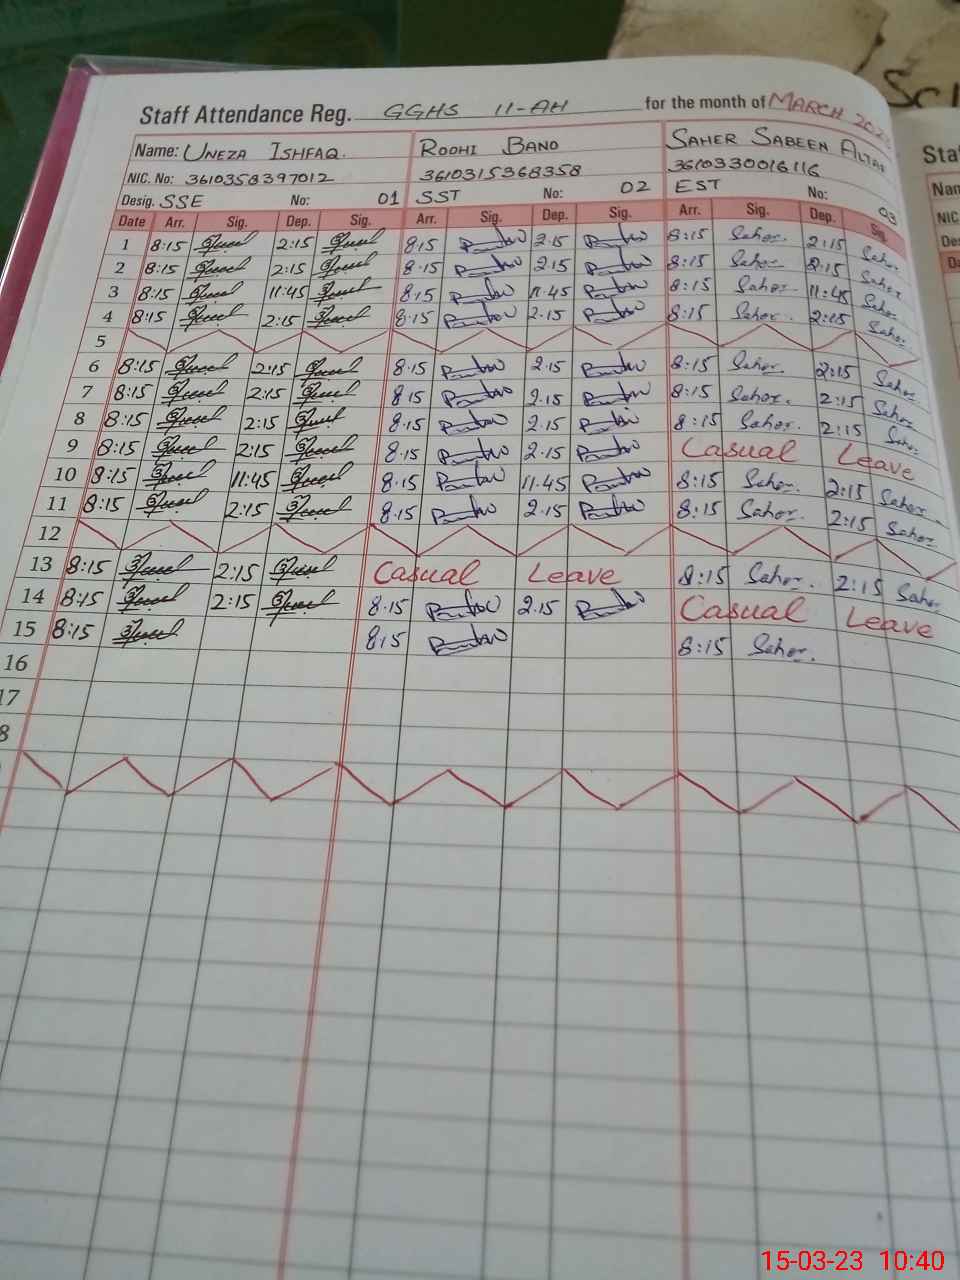 Staff Attendance Reg. GGHS 11-AH for the month of MARCH
Name: UNEZA ISHFAQ. ROOHI BANO SAHER SABEEN ALTAF
NIC. No: 3610358397012 3610315368358 3610330016116
Desig. SSE No: 01 SST No: 02 EST No: 03
Date Arr. Sig. Dep. Sig. Arr. Sig. Dep. Sig. Arr. Sig. Dep. Sig.
1 8:15 2:15 8.15 2.15 8:15 Saher. 2:15 Saher
2 8:15 2:15 8.15 2.15 8:15 Saher 2:15 Saher
3 8:15 11:45 8.15 11.45 8:15 Saher 11:45 Saher
4 8:15 2:15 8.15 2.15 8:15 Saher. 2:15 Saher
5
6 8:15 2:15 8.15 2.15 8:15 Saher. 2:15 Saher
7 8:15 2:15 8.15 2.15 8:15 Saher. 2:15 Saher
8 8:15 2:15 8.15 2.15 8:15 Saher. 2:15 Saher
9 8:15 2:15 8.15 2.15 Casual Leave
10 8:15 11:45 8.15 11.45 8:15 Saher. 2:15 Saher
11 8:15 2:15 8.15 2.15 8:15 Saher. 2:15 Saher
12
13 8:15 2:15 Casual Leave 8:15 Saher. 2:15 Saher
14 8:15 2:15 8.15 2.15 Casual Leave
15 8:15 8.15 8:15 Saher.
16
17
8
Sta
Nam
NIC
Des
Da
15-03-23 10:40